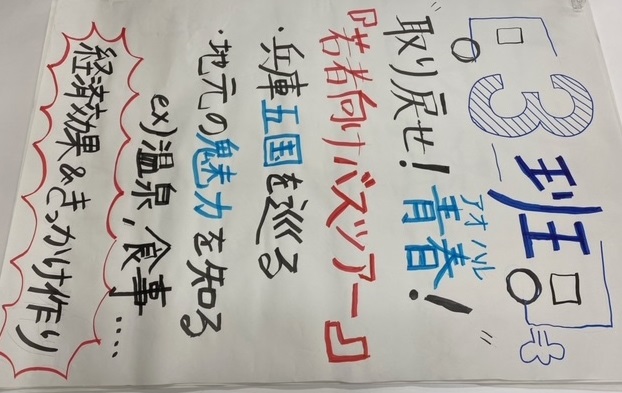 3班
"取り戻せ！青春！"
アオハル
『若者向けバスツアー』
・兵庫五国を巡る
・地元の魅力を知る
ex)温泉,食事....
経済効果&きっかけ作り